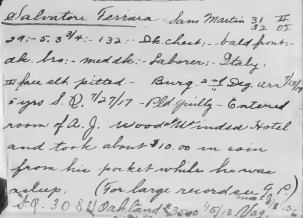 Salvatore Ferrara - San Martin 31 II
29:- 5.3 3/4:- 132:- Dk chest:- bald front:-
dk bro:- med dk:- Laborer:- Italy.
face slt pitted - Burg 2nd Deg arr 7/13/17
5 yrs S.Q. 7/27/17 - Pld guilty - Entered
room of A.J. Wood at Winded Hotel
and took about $10.00 in coin
from his pocket while he was
asleep. (For large record see G.P.)
S.Q. 30811 Oakland # 3540 Vag.